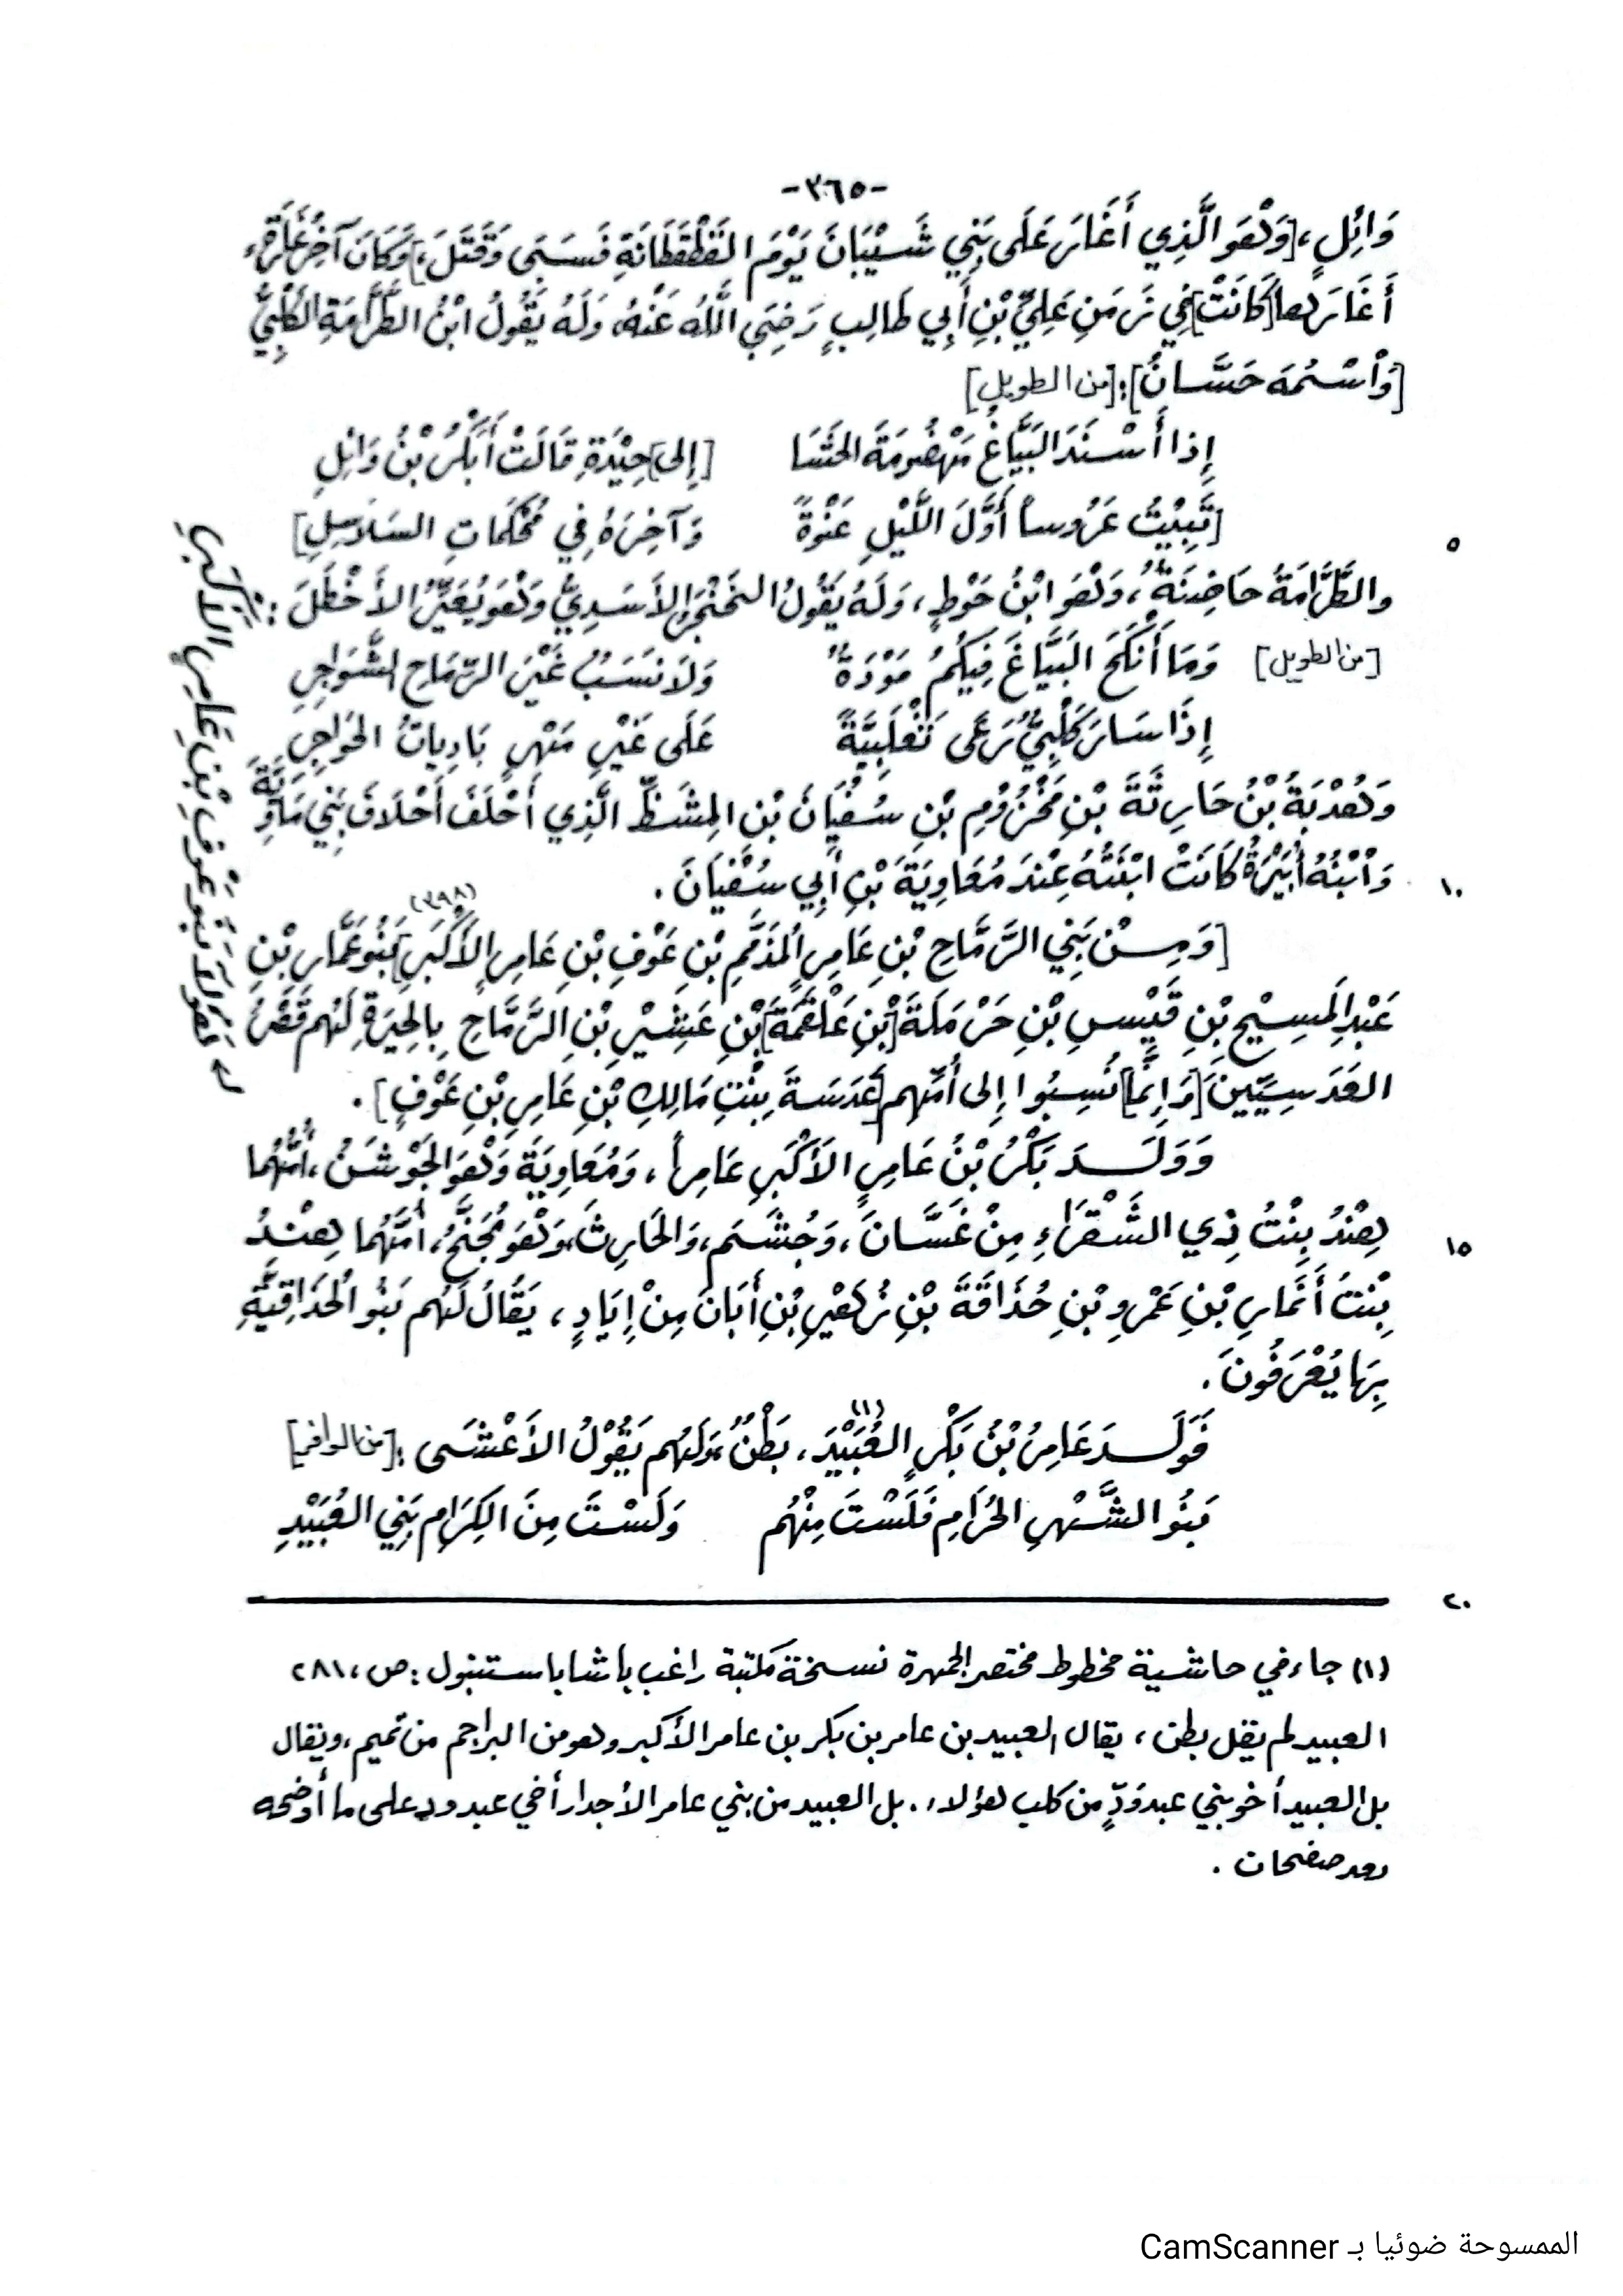 -٣٦٥-
وَائِلٍ، [وَهْوَ الَّذِي أَغَارَ عَلَى بَنِي شَيْبَانَ يَوْمَ القَطْقَطَانَةِ فَسَبَى وَقَتَلَ،] وَكَانَ آخِرُ غَارَةٍ
أَغَارَها [كَانَتْ] فِي زَمَنِ عَلِيِّ بْنِ أَبِي طَالِبٍ رَضِيَ اللَّهُ عَنْهُ، وَلَهُ يَقُولُ ابْنُ الطَّرَّامَةِ الكَلْبِيُّ
[وَاْسْمُهَ حَسَّانُ]: [من الطويل]
إِذا أَسْنَدَ البَيَّاغُ مَهْضُومَةَ الحَشَا [إلى] جِيْدَةِ قَالَتْ أَبَكْرُ بْنُ وَائِلِ
[تَبِيْتُ عَرُوساً أَوَّلَ اللَّيْلِ عَنْوَةً وَآخِرَهُ فِي مُحْكَمَاتِ السَلاَسِلِ]
٥
والطَّرَّامَةُ حَاضِنَةٌ، وَهْوَ ابْنُ حَوْطٍ، وَلَهُ يَقُولُ الخَنْجَرُ الأَسَدِيُّ وَهْوَ يُعَيِّرُ الأَخْطَلَ:
[من الطويل] وَمَا أَنْكَحَ البَيَّاغَ فِيكُمُ مَوْدَةٌ وَلاَ نَسَبٌ غَيْرَ الرِّمَاحِ الشَّوَاجِرِ
إِذَا سَارَ كَلْبِيٌّ تَغْلَبِيَّةً عَلَى غَيْرِ مَهْرٍ بَادِيَاتُ
وَهُدْبَةَ بْنُ حَارِثَةَ بْنِ مَخْزُومِ بْنِ سُفْيَانَ بْنِ المِشَظِّ الَّذِي أَحْلَفَ أَحْلاَفَ بَنِي مَاوِيَّةَ
وَاْبْنُهُ كَانَتْ ابْنَتُهُ عِنْدَ مُعَاوِيَةَ بْنِ أَبِي سُفْيَانَ.
١٠
(٣٩٨)
[وَمِنْ بَنِي الرَّمَّاحِ بْنِ عَامِرٍ المُذَمَّمِ بْنِ عَوْفِ بْنِ عَامِرٍ الأَكْبَرِ] بَنُو عَمَّارِ بْنِ
عَبْدِ المَسِيْحِ بْنِ قَيْسِ بْنِ حَرْمَلَةَ [بْنِ عَلْقَمَةَ] بْنِ عَشِيْرِ بْنِ الرَّمَّاحِ بِالحِيَرَةِ لَهُم قَصْرُ
العَدَسِيِّينَ [وَإِنَّمَا] نُسِبُوا إِلى أُمِّهم [عَدَسَةَ بِنْتِ مَالِكِ بْنِ عَامِرِ بْنِ عَوْفٍ].
وَوَلَدَ بَكْرُ بْنُ عَامِرٍ الأَكْبَرِ عَامِراً، وَمُعَاوِيَةَ وَهْوَ الجَوْشَنُ، أُمُّهُمَا
هِنْدُ بِنْتُ ذِي الشَّقْرَاءِ مِنْ غَسَّانَ، وَجُشَمَ، وَالحَارِثَ، وَهْوَ مُجَنَّحُ، أُمَّهُمَا هِنْدُ
١٥
بِنْتُ أَنْمَارِ بْنِ عَمْرِو بْنِ حُذَاقَةَ بْنِ زُهَيْرِ بْنِ أَبَانَ مِنْ إِيَادٍ، يَقَالُ لَهُم بَنُو الحُذَاقِيَّةِ
بِهَا يُعْرَفُونَ.
فَوَلَدَ عَامِرُ بْنُ بَكْرٍ العُبَيْدَ (١)، بَطْنٌ، وَلَهُم يَقُوْلُ الأَعْشَى: [من الوافر]
بَنُو الشَّهْرِ الحُرَامِ فَلَسْتَ مِنْهُم وَلَسْتَ مِنَ الكِرَامِ بَنِي العُبَيْدِ
٢٠
هَؤُلاَءِ بَنُو عَوْفِ بْنِ عَامِرٍ الأَكْبَرِ
(١) جاء في حاشية مخطوط مختصر الجمهرة نسخة مكتبة راغب باشا باستنبول: ص، ٢٨١
العبيد لم يقل بطن، يقال العبيد بن عامر بن بكر بن عامر الأكبر وهو من البراجم من تميم، ويقال
بل العبيد أخو بني عبد وَدٍّ من كلب هؤلاء. بل العبيد من بني عامر الأجدار أخي عبد ود على ما أوضحه
بعد صفحات.
الممسوحة ضوئيا بـ CamScanner